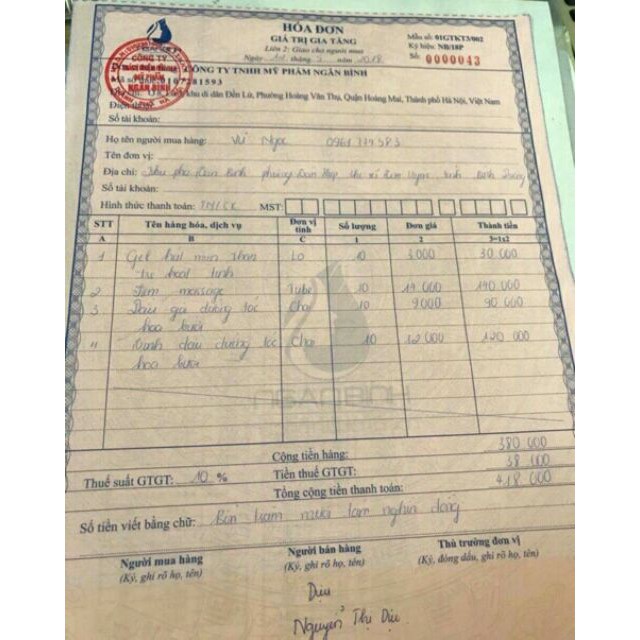 HÓA ĐƠN
GIÁ TRỊ GIA TĂNG
Liên 2: Giao cho người mua
Ngày tháng năm 2018
Mẫu số: 01GTKT3/002
Ký hiệu: NB/18P
Số: 0000043
CÔNG TY TNHH MỸ PHẨM NGÂN BÌNH
Mã số 0107281593
khu di dân Đền Lừ, Phường Hoàng Văn Thụ, Quận Hoàng Mai, Thành phố Hà Nội, Việt Nam
Điện
Số tài khoản:
Họ tên người mua hàng: Vũ Ngọc 0961779583
Tên đơn vị:
Địa chỉ: Khu phố Tân Bình phường Tân Hiệp thị xã Tân Uyên tỉnh Bình Dương
Số tài khoản:
Hình thức thanh toán: TM/CK MST:
STT Tên hàng hóa, dịch vụ Đơn vị tính Số lượng Đơn giá Thành tiền
A B C 1 2 3=1x2
1 Gel hút mụn than Lọ 10 3000 30.000
tre hoạt tính
2 massage Tube 10 14 000 140.000
3 Dầu gội dưỡng tóc Chai 10 9000 90 000
hoa bưởi
4 dầu dưỡng tóc Chai 10 12 000 120 000
hoa bưởi
Cộng tiền hàng: 380 000
Thuế suất GTGT: 10 % Tiền thuế GTGT: 38 000
Tổng cộng tiền thanh toán: 418 000
Số tiền viết bằng chữ: Bốn trăm mười tám nghìn đồng
Người mua hàng Người bán hàng Thủ trưởng đơn vị
(Ký, ghi rõ họ, tên) (Ký, ghi rõ họ, tên) (Ký, đóng dấu, ghi rõ họ, tên)
Dịu
Nguyễn Thị Dịu